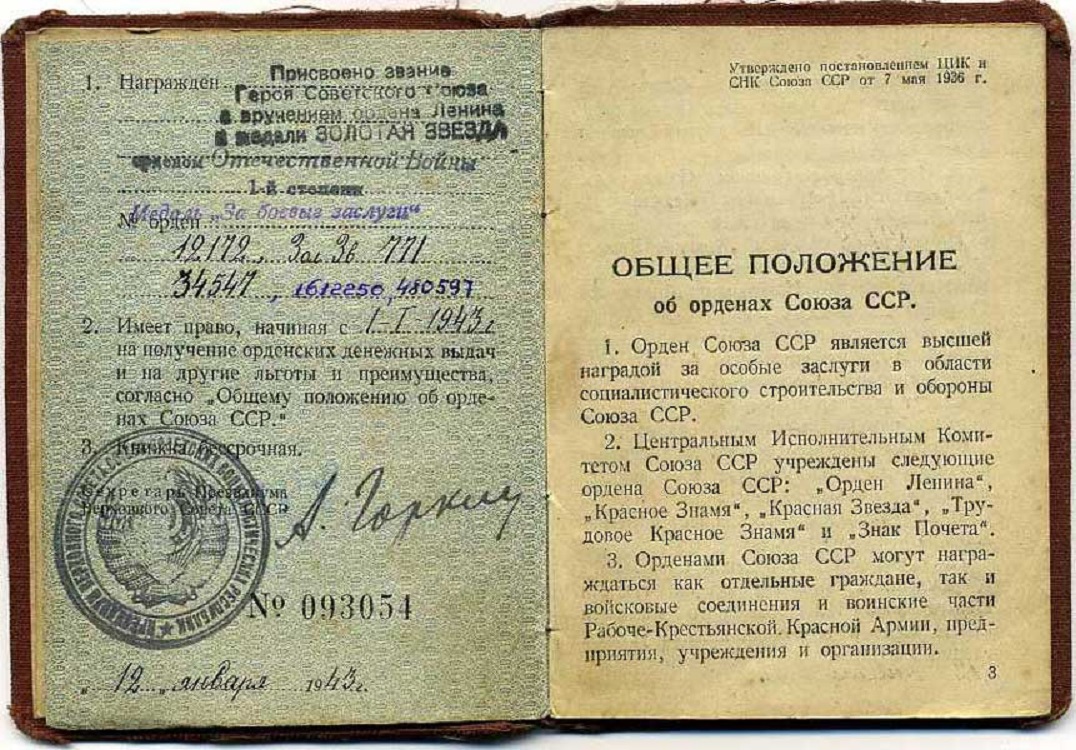 1. Награжден
Присвоено звание
Героя Советского Союза
с вручением ордена Ленина
и медали ЗОЛОТАЯ ЗВЕЗДА
орденом Отечественной Войны
1-й степени
Медаль „За боевые заслуги“
№ орден
12172, Зол. Зв. 771
34547, 1612250, 480597
2. Имеет право, начиная с 1-I 1943 г
на получение орденских денежных выдач
и на другие льготы и преимущества,
согласно „Общему положению об орде-
нах Союза ССР.“
3. Книжка бессрочная.
Секретарь Президиума
Верховного Совета СССР
А. Горкин
№ 093054
„ 12 „ января 1943 г.
Утверждено постановлением ЦИК и
СНК Союза ССР от 7 мая 1936 г.
ОБЩЕЕ ПОЛОЖЕНИЕ
об орденах Союза ССР.
1. Орден Союза ССР является высшей
наградой за особые заслуги в области
социалистического строительства и обороны
Союза ССР.
2. Центральным Исполнительным Коми-
тетом Союза ССР учреждены следующие
ордена Союза ССР: „Орден Ленина“,
„Красное Знамя“, „Красная Звезда“, „Тру-
довое Красное Знамя“ и „Знак Почета“.
3. Орденами Союза ССР могут награ-
ждаться как отдельные граждане, так и
войсковые соединения и воинские части
Рабоче-Крестьянской Красной Армии, пред-
приятия, учреждения и организации.
3